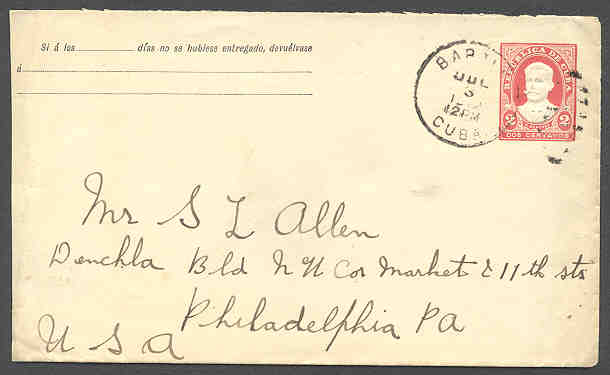 Si á los ____ días no se hubiese entregado, devuélvase
á ____
JUL
3
12PM
CUBA
REPUBLICA DE CUBA
2 2
DOS CENTAVOS
Mr S L Allen
Denckla Bld N W Cor Market & 11th sts
Philadelphia PA
U S A